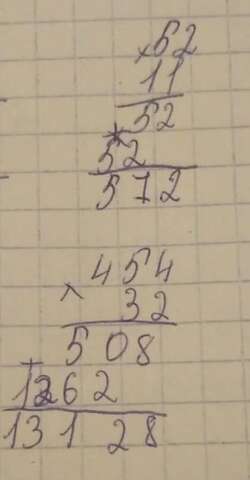 ×52
11
52
+
52
572
454
×
32
508
+
1262
13128